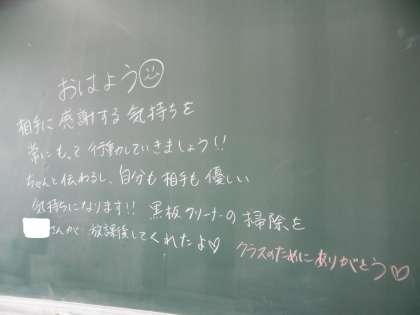 おはよう☺
相手に感謝する気持ちを
常にもって行動していきましょう!!
ちゃんと伝わるし、自分も相手も優しい
気持ちになります!! 黒板クリーナーの掃除を
さんが放課後してくれたよ♡
クラスのためにありがとう♡